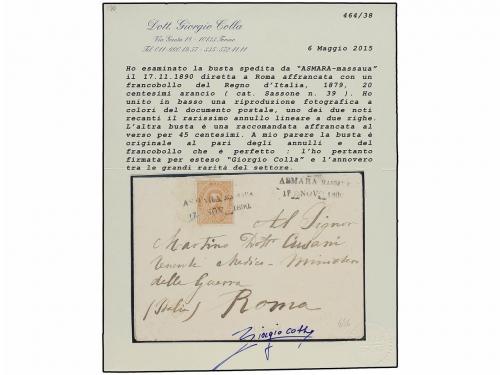 464/38
Dott. Giorgio Colla
6 Maggio 2015
Ho esaminato la busta spedita da "ASMARA-massaua"
il 17.11.1890 diretta a Roma affrancata con un
francobollo del Regno d'Italia, 1879, 20
centesimi arancio ( cat. Sassone n. 39 ). Ho
unito in basso una riproduzione fotografica a
colori del documento postale, uno dei due noti
recanti il rarissimo annullo lineare a due righe.
L'altra busta è una raccomandata affrancata al
verso per 45 centesimi. A mio parere la busta è
originale al pari degli annulli e del
francobollo che è perfetto : l'ho pertanto
firmata per esteso "Giorgio Colla" e l'annovero
tra le grandi rarità del settore.
ASMARA MASSAUA
17 NOV 1890
Al Signor
Martino Dott
Tenente Medico - Ministero
della Guerra
(Italia) Roma
Giorgio Colla